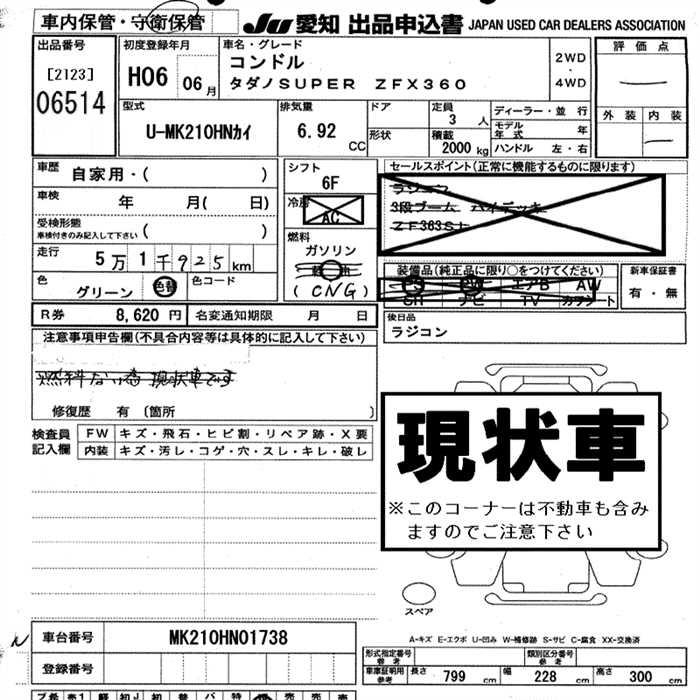 車内保管・守衛保管
JU 愛知 出品申込書 JAPAN USED CAR DEALERS ASSOCIATION
出品番号
[2123]
06514
初度登録年月
H06 06月
車名・グレード
コンドル
タダノSUPER ZFX360
2WD
・
4WD
評価点
外装 内装
型式
U-MK210HNカイ
排気量
6.92
CC
ドア
形状
定員
3 人
積載
2000 kg
ディーラー・並行
モデル年式 年
ハンドル 左・右
車歴
自家用・( )
車検
年 月( 日)
受検形態
車検付きのみ記入して下さい ( )
走行
5万1千925km
色
グリーン
色替
色コード
シフト
6F
冷房
AC
燃料
ガソリン
軽油
(CNG)
セールスポイント(正常に機能するものに限ります)
ラジコン
3段ブーム ハイデッキ
ZF363SL
装備品(純正品に限り○をつけてください)
PS PW エアB AW
SR ナビ TV カワシート
新車保証書
有・無
R券 8,620円
名変通知期限 月 日
後日品
ラジコン
注意事項申告欄(不具合内容等は具体的に記入して下さい)
燃料ない為 現状車です
修復歴 有 〔箇所 〕
検査員
記入欄
FW キズ・飛石・ヒビ割・リペア跡・X要
内装 キズ・汚レ・コゲ・穴・スレ・キレ・破レ
現状車
※このコーナーは不動車も含み
ますのでご注意下さい
スペア
A-キズ E-エクボ U-凹み W-補修跡 S-サビ C-腐食 XX-交換済
車台番号
MK210HN01738
登録番号
形式指定番号
参考
類別区分番号
参考
車庫証明用
参考
長さ 799 cm
幅 228 cm
高さ 300 cm